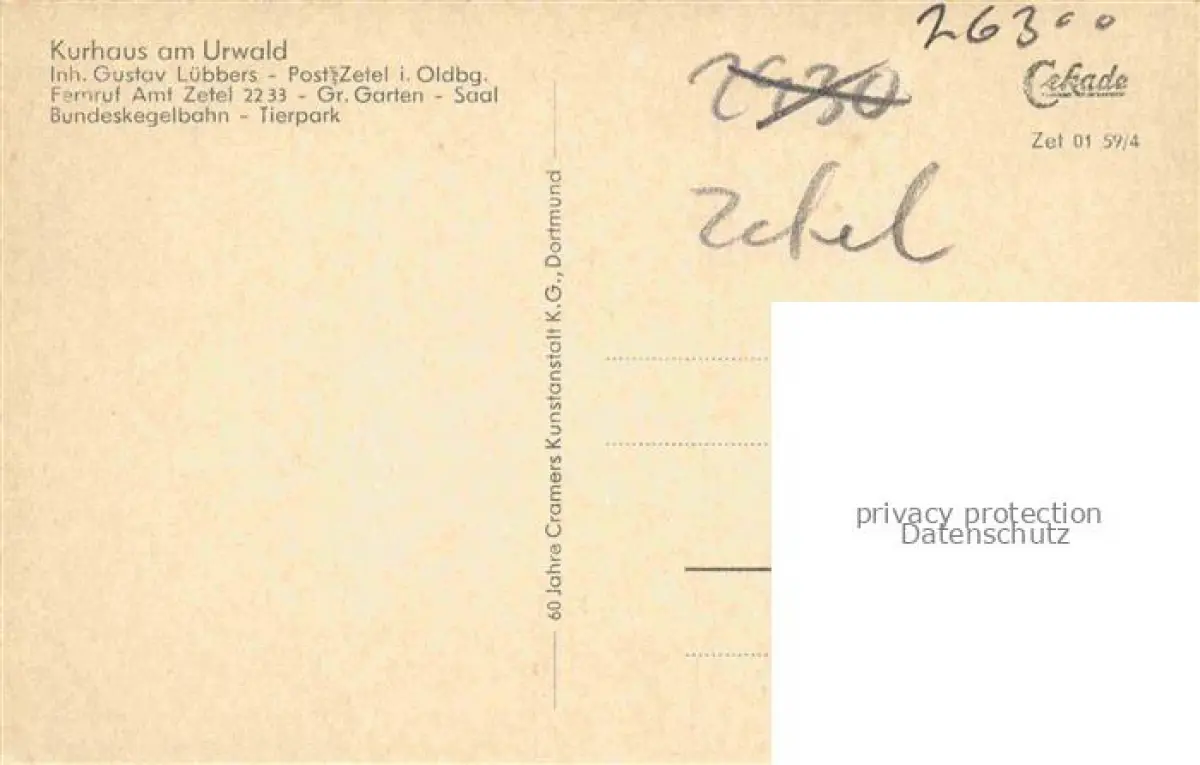 Kurhaus am Urwald
Inh. Gustav Lübbers - Post Zetel i. Oldbg.
Fernruf Amt Zetel 22 33 - Gr. Garten - Saal
Bundeskegelbahn - Tierpark
60 Jahre Cramers Kunstanstalt K.G., Dortmund
263°°
2930
Cekade
Zet 01 59/4
Zetel
privacy protection
Datenschutz